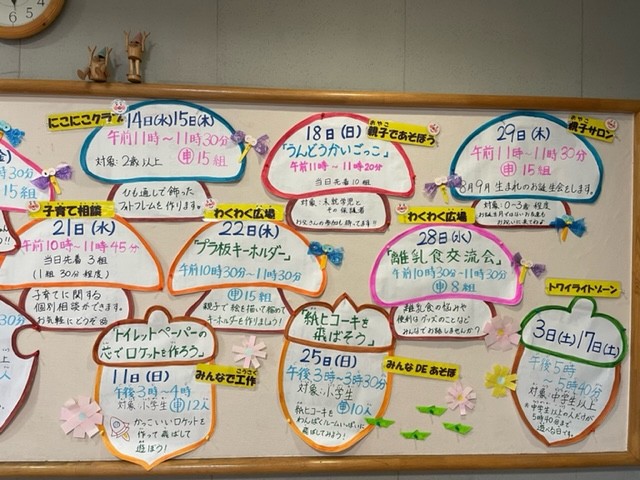 にこにこクラブ
14日(水)15日(木)
午前11時〜11時30分
対象:2歳以上 申15組
ひも通しで飾った
フォトフレームを作ります。
親子であそぼう
18日(日)
「うんどうかいごっこ」
午前11時〜11時20分
当日先着10組
対象:未就学児と
その保護者
お父さんの参加も待ってます!!
親子サロン
29日(木)
午前11時〜11時30分
申15組
8月9月生まれのお誕生会をします。
対象:0〜3歳程度
お誕生月ではないお友だちも
お祝いに来てね♡
子育て相談
21日(水)
午前10時〜11時45分
当日先着3組
(1組30分程度)
子育てに関する
個別相談ができます。
お気軽にどうぞ
わくわく広場
22日(木)
「プラ板キーホルダー」
午前10時30分〜11時30分
申15組
親子で絵を描いて極めて
キーホルダーを作りましょう!
わくわく広場
28日(水)
「離乳食交流会」
午前10時30分〜11時30分
申8組
離乳食の悩みや
便利なグッズのことなど
みんなでお話しませんか?
「トイレットペーパーの
芯でロケットを作ろう」
11日(日)
午後3時〜4時
対象:小学生 申12人
かっこいいロケットを
作って飛ばして
遊ぼう!
みんなで工作
「紙ヒコーキを
飛ばそう」
25日(日)
午後3時〜3時30分
対象:小学生
申10人
紙ヒコーキを
わんぱくルームいっぱいに
飛ばしてみよう!
みんなDEあそぼ
トワイライトゾーン
3日(土)17日(土)
午後5時
〜5時40分
対象:中学生以上
中学生以上の人だけが
5時40分まで
遊べる日です。